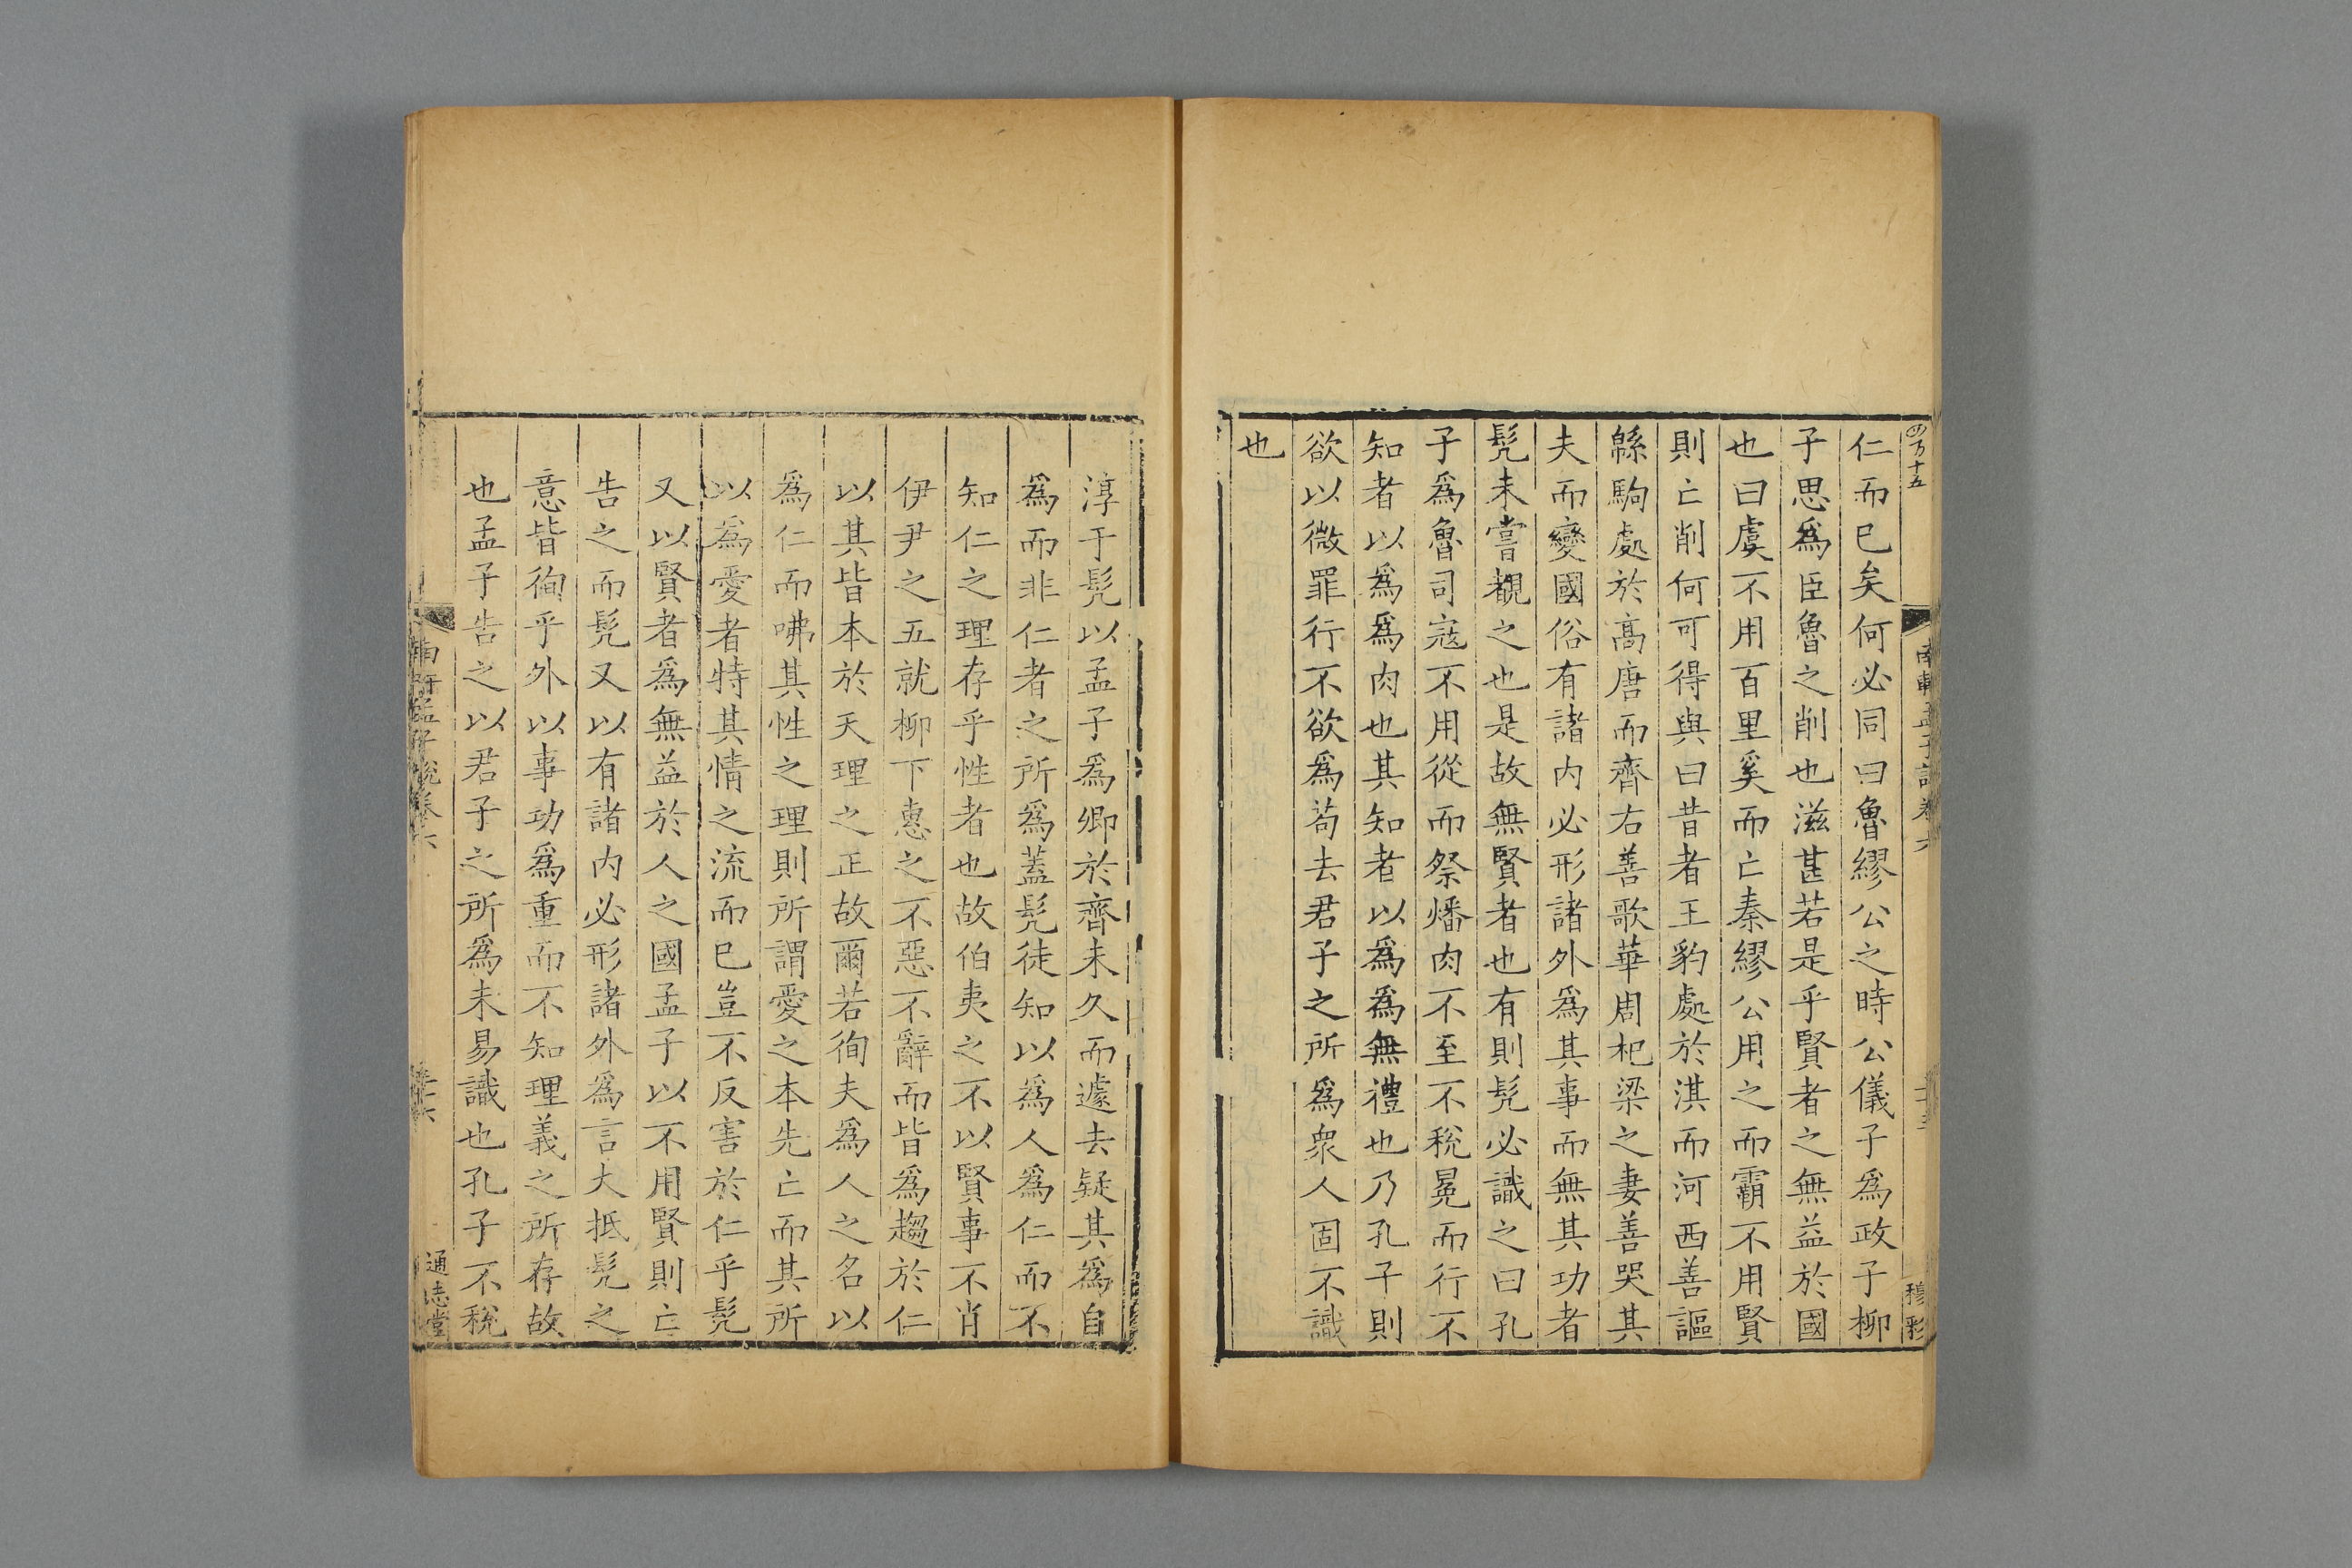 仁而已矣何必同曰魯繆公之時公儀子爲政子柳
子思爲臣魯之削也滋甚若是乎賢者之無益於國
也曰虞不用百里奚而亡秦繆公用之而霸不用賢
則亡削何可得與曰昔者王豹處於淇而河西善謳
緜駒處於高唐而齊右善歌華周杞梁之妻善哭其
夫而變國俗有諸内必形諸外爲其事而無其功者
髡未嘗覩之也是故無賢者也有則髡必識之曰孔
子爲魯司寇不用從而祭燔肉不至不稅冕而行不
知者以爲爲肉也其知者以爲爲無禮也乃孔子則
欲以微罪行不欲爲苟去君子之所爲衆人固不識
也
淳于髡以孟子爲卿於齊未久而遽去疑其爲自
爲而非仁者之所爲蓋髡徒知以爲人爲仁而不
知仁之理存乎性者也故伯夷之不以賢事不肖
伊尹之五就柳下惠之不惡不辭而皆爲趨於仁
以其皆本於天理之正故爾若徇夫爲人之名以
爲仁而咈其性之理則所謂愛之本先亡而其所
以爲愛者特其情之流而已豈不反害於仁乎髡
又以賢者爲無益於人之國孟子以不用賢則亡
告之而髡又以有諸内必形諸外爲言大抵髡之
意皆徇乎外以事功爲重而不知理義之所存故
也孟子告之以君子之所爲未易識也孔子不稅
南軒孟子說卷六
通志堂